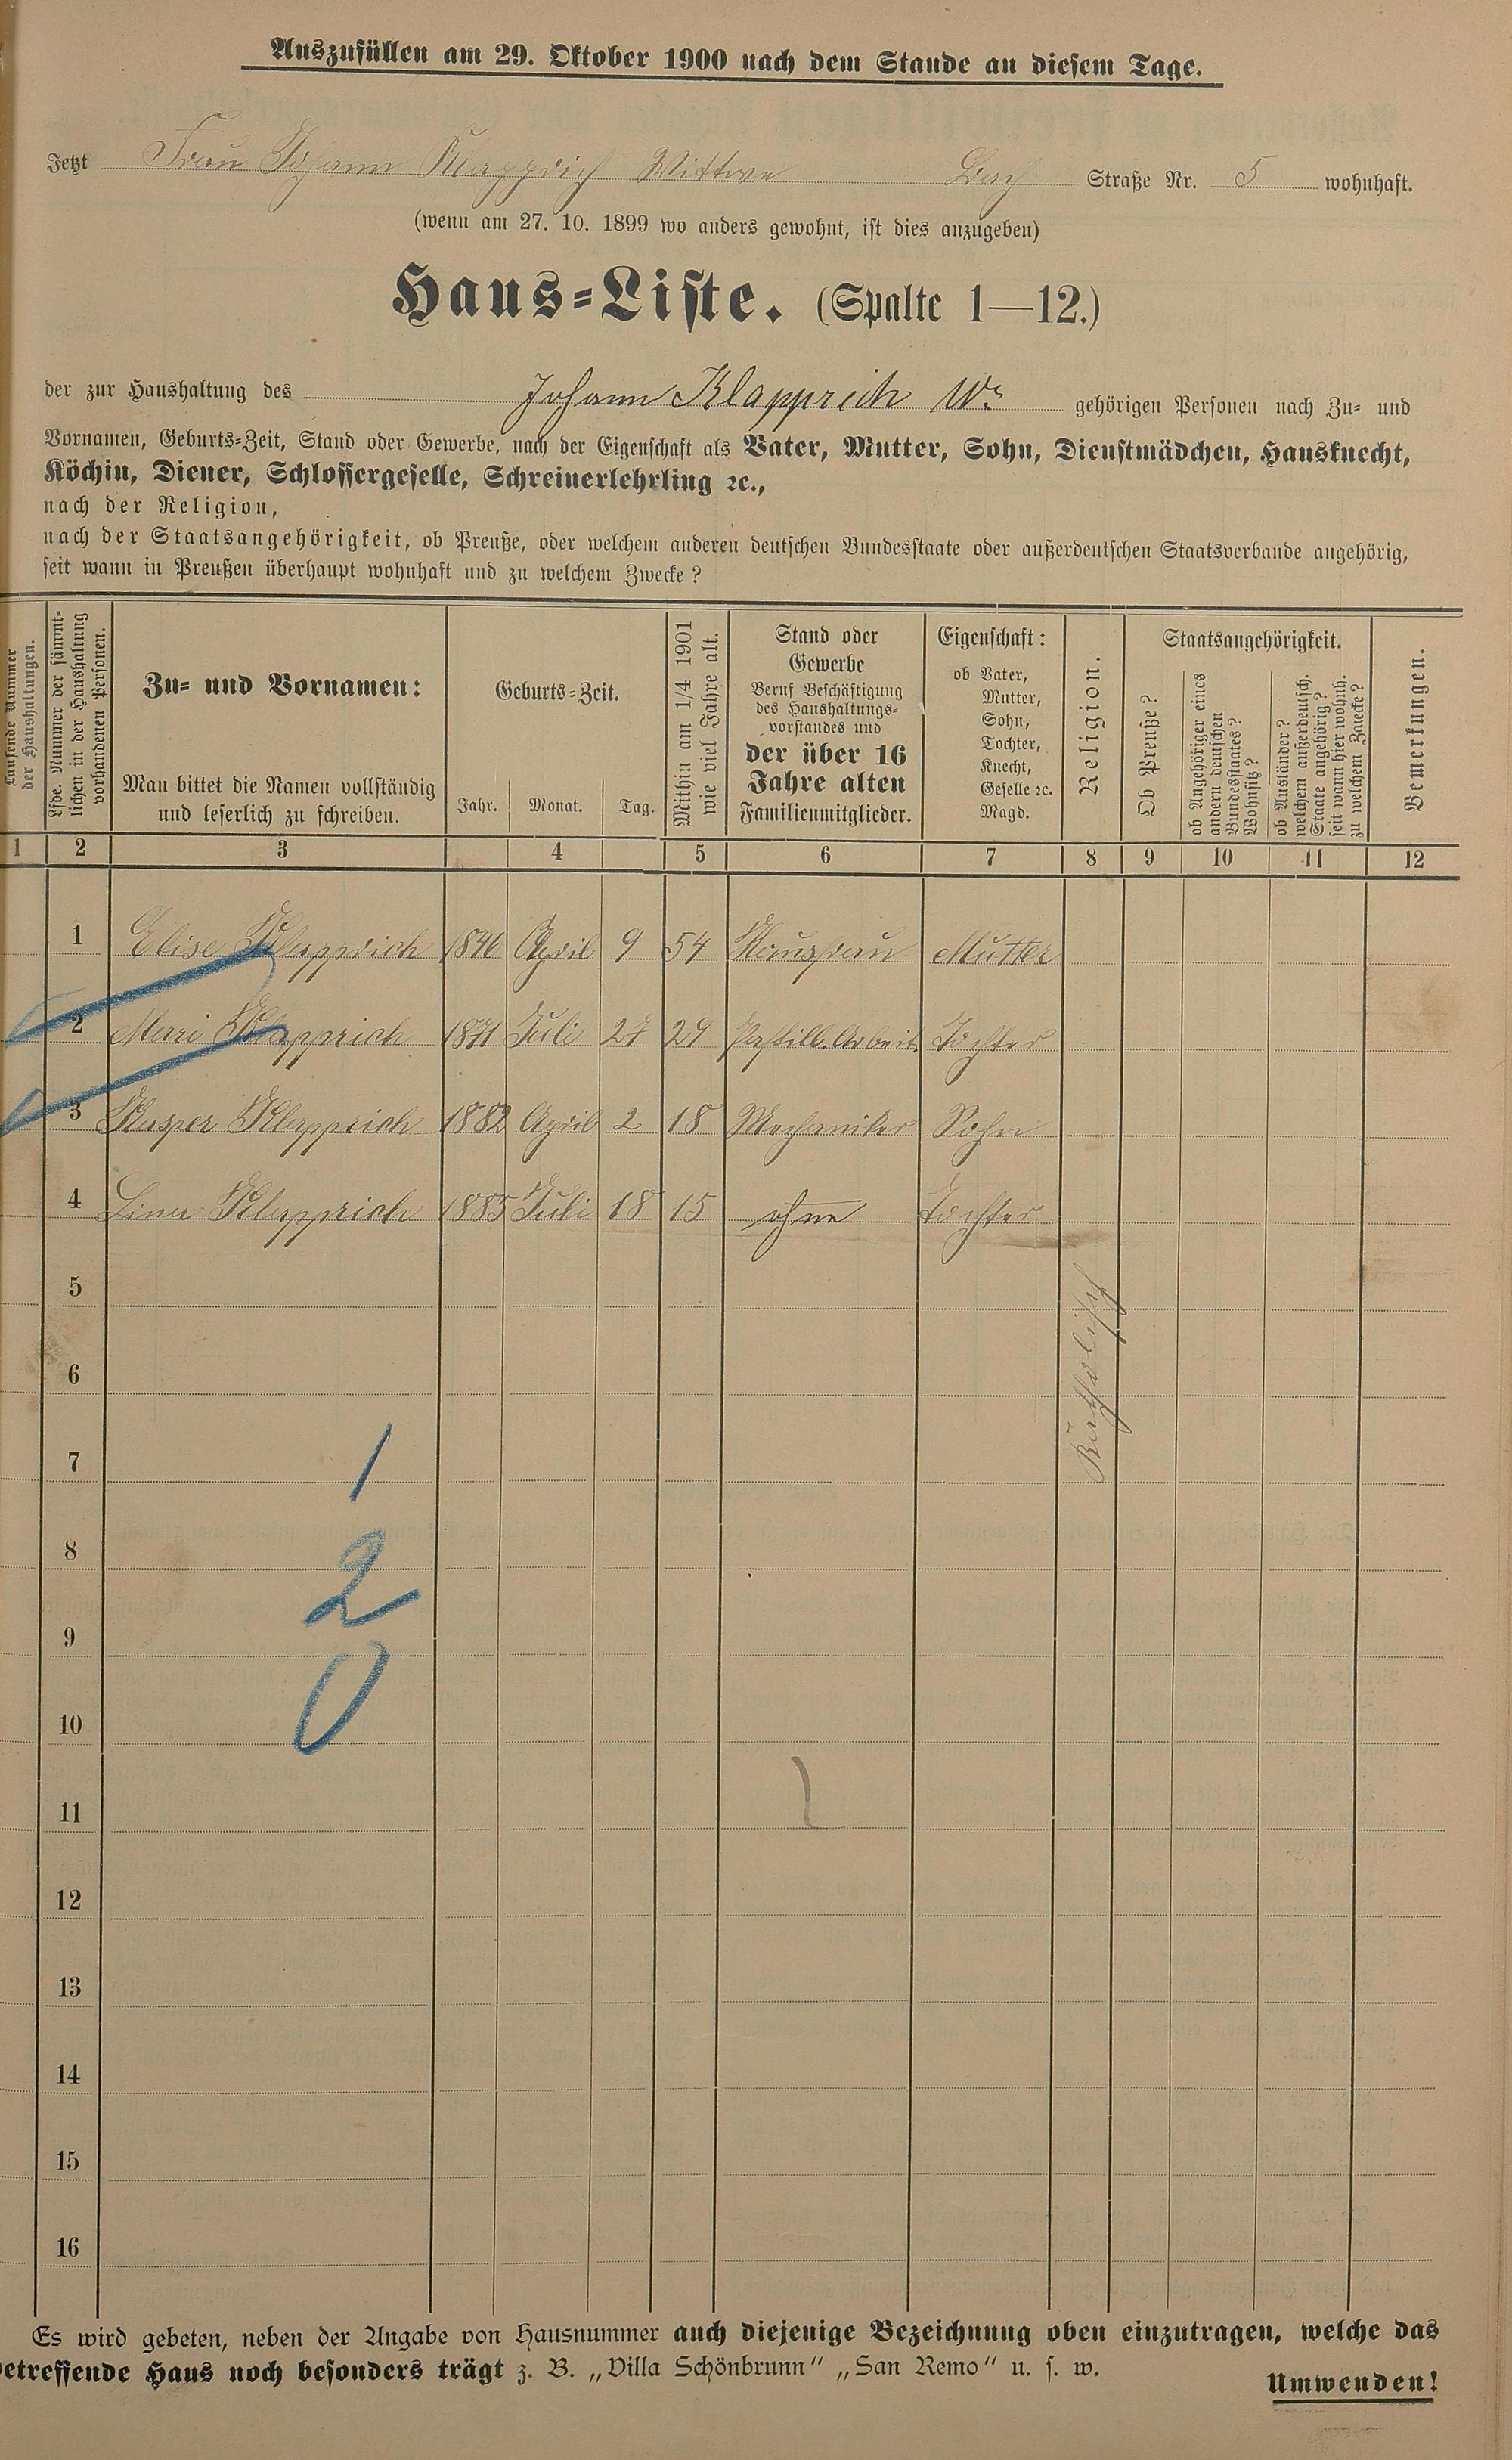 Auszufüllen am 29. Oktober 1900 nach dem Stande an diesem Tage.
Jetzt Frau Johann Klapprich Wittwe Bach Straße Nr. 5 wohnhaft.
(wenn am 27. 10. 1899 wo anders gewohnt, ist dies anzugeben)
Haus=Liste. (Spalte 1—12.)
der zur Haushaltung des Johann Klapprich Ww. gehörigen Personen nach Zu= und
Vornamen, Geburts=Zeit, Stand oder Gewerbe, nach der Eigenschaft als Vater, Mutter, Sohn, Dienstmädchen, Hausknecht,
Köchin, Diener, Schlossergeselle, Schreinerlehrling ꝛc.,
nach der Religion,
nach der Staatsangehörigkeit, ob Preuße, oder welchem anderen deutschen Bundesstaate oder außerdeutschen Staatsverbande angehörig,
seit wann in Preußen überhaupt wohnhaft und zu welchem Zwecke?
Laufende Nummer
der Haushaltungen.
Lfde. Nummer der sämmt=
lichen in der Haushaltung
vorhandenen Personen.
Zu= und Vornamen:
Man bittet die Namen vollständig
und leserlich zu schreiben.
Geburts=Zeit.
Jahr. Monat. Tag.
Mithin am 1/4 1901
wie viel Jahre alt.
Stand oder
Gewerbe
Beruf Beschäftigung
des Haushaltungs=
vorstandes und
der über 16
Jahre alten
Familienmitglieder.
Eigenschaft:
ob Vater,
Mutter,
Sohn,
Tochter,
Knecht,
Geselle ꝛc.
Magd.
Religion.
Staatsangehörigkeit.
Ob Preuße?
ob Angehöriger eines
andern deutschen
Bundesstaates?
Wohnsitz?
ob Ausländer?
welchem außerdeutsch.
Staate angehörig?
seit wann hier wohnh.
zu welchem Zwecke?
Bemerkungen.
1 2 3 4 5 6 7 8 9 10 11 12
1 Elise Klapprich 1846 April 9 54 Hausfrau Mutter
2 Marie Klapprich 1871 Juli 27 29 Pastill. Arbeit. Tochter
3 Kasper Klapprich 1882 April 2 18 Mechaniker Sohn
4 Lina Klapprich 1885 Juli 18 15 ohne Tochter
Katholisch
5
6
7
8
9
10
11
12
13
14
15
16
1
2
0
Es wird gebeten, neben der Angabe von Hausnummer auch diejenige Bezeichnung oben einzutragen, welche das
betreffende Haus noch besonders trägt z. B. „Villa Schönbrunn“ „San Remo“ u. s. w.
Umwenden!